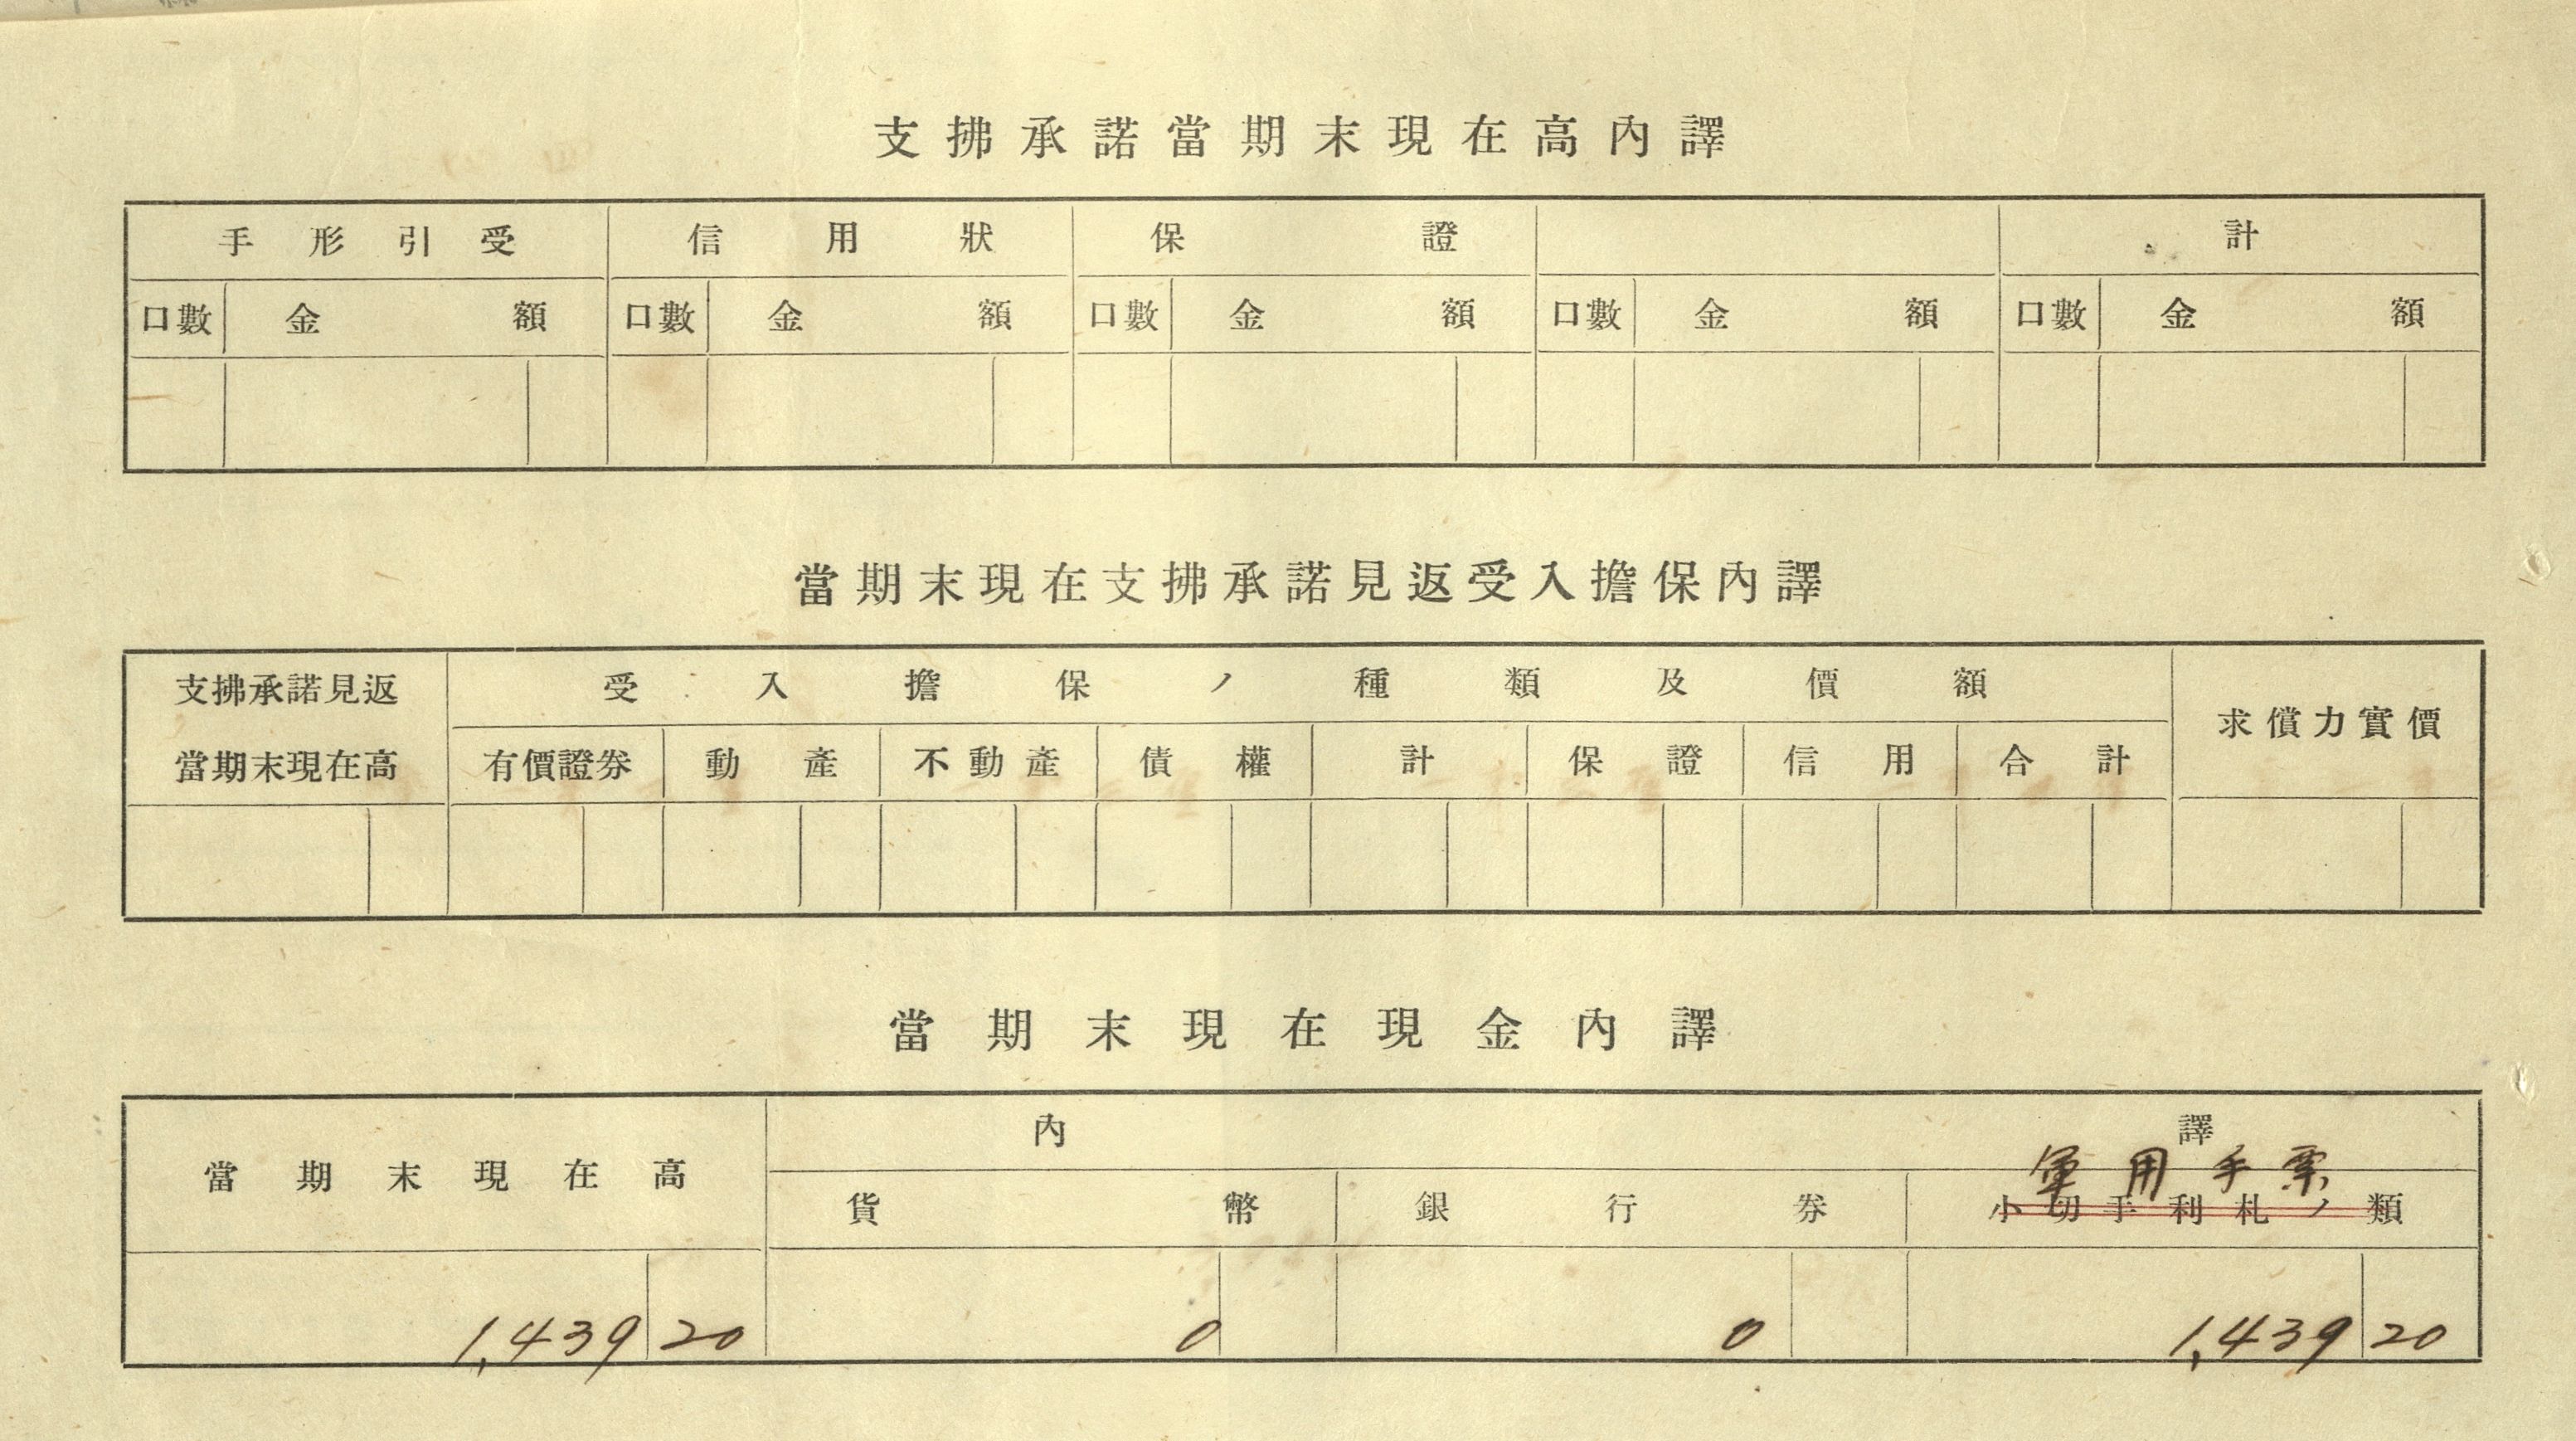 支拂承諾當期末現在高內譯
手形引受 信用狀 保證 計
口數 金額 口數 金額 口數 金額 口數 金額 口數 金額
當期末現在支拂承諾見返受入擔保內譯
支拂承諾見返 受入擔保ノ種類及價額 求償力實價
當期末現在高 有價證券 動產 不動產 債權 計 保證 信用 合計
當期末現在現金內譯
當期末現在高 內譯
軍用手票
貨幣 銀行券 小切手利札ノ類
1,439 20 0 0 1,439 20